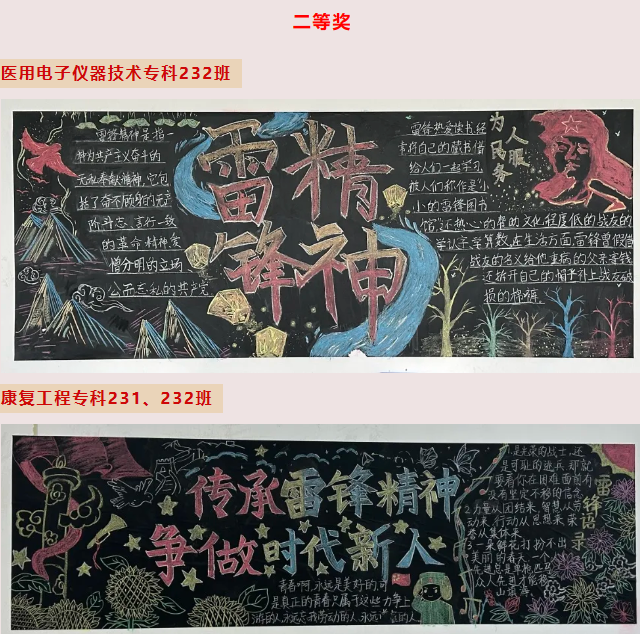 二等奖
医用电子仪器技术专科232班
雷锋精神
雷锋精神是指一
种为共产主义奋斗的
无私奉献精神,它包
括了奋不顾身的无产
阶斗志,言行一致
的革命精神爱
憎分明的立场
公而忘私的共产党
雷锋热爱读书经
常将自己的藏书借
给人们一起学习
被人们称作是“小
小的雷锋图书
馆”还热心的帮助文化程度低的战友的
学认字学算数,在生活方面雷锋曾假借
战友的名义给他重病的父亲寄钱
还拆开自己的帽子补上战友破
损的棉裤
为人民服务
康复工程专科231、232班
传承雷锋精神
争做时代新人
青春啊,永远是美好的,可
是真正的青春只属于这些力争上
游的人,永远忘我劳动的人,永远谦虚的人
雷锋语录
1.是光荣的战士,还
是可耻的逃兵,那就
要看你在困难面前有
没有坚定不移的信念
2.力量从团结来,智慧从劳
动来,行动从思想来,荣
誉从集体来
3.一朵鲜花打扮不出
美丽的春天,一个人
先进总是单枪匹马
众人先进才能移
山填海